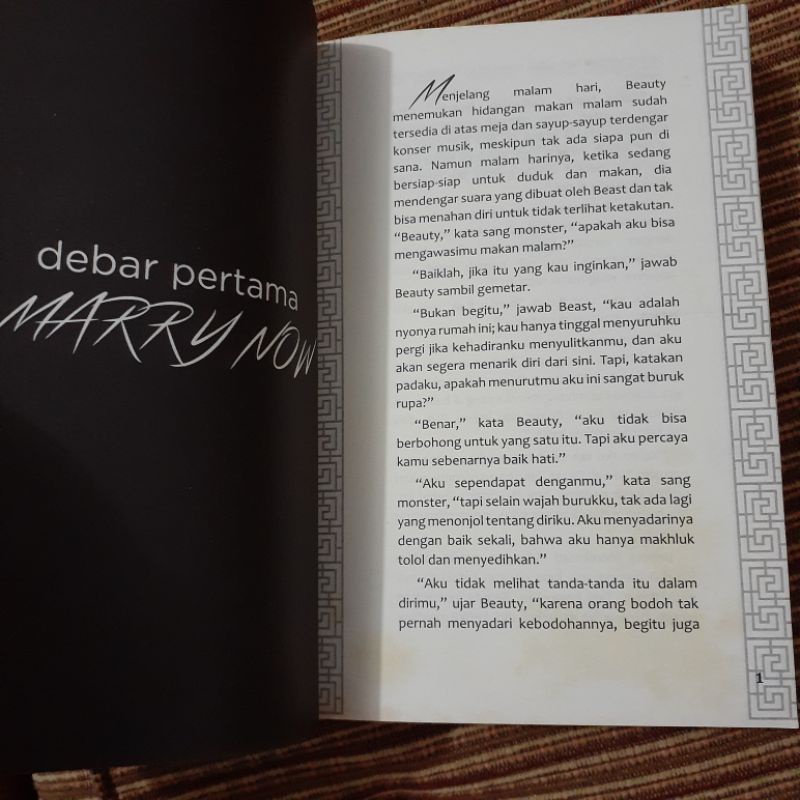 debar pertama
MARRY NOW
Menjelang malam hari, Beauty
menemukan hidangan makan malam sudah
tersedia di atas meja dan sayup-sayup terdengar
konser musik, meskipun tak ada siapa pun di
sana. Namun malam harinya, ketika sedang
bersiap-siap untuk duduk dan makan, dia
mendengar suara yang dibuat oleh Beast dan tak
bisa menahan diri untuk tidak terlihat ketakutan.
“Beauty,” kata sang monster, “apakah aku bisa
mengawasimu makan malam?”
“Baiklah, jika itu yang kau inginkan,” jawab
Beauty sambil gemetar.
“Bukan begitu,” jawab Beast, “kau adalah
nyonya rumah ini; kau hanya tinggal menyuruhku
pergi jika kehadiranku menyulitkanmu, dan aku
akan segera menarik diri dari sini. Tapi, katakan
padaku, apakah menurutmu aku ini sangat buruk
rupa?”
“Benar,” kata Beauty, “aku tidak bisa
berbohong untuk yang satu itu. Tapi aku percaya
kamu sebenarnya baik hati.”
“Aku sependapat denganmu,” kata sang
monster, “tapi selain wajah burukku, tak ada lagi
yang menonjol tentang diriku. Aku menyadarinya
dengan baik sekali, bahwa aku hanya makhluk
tolol dan menyedihkan.”
“Aku tidak melihat tanda-tanda itu dalam
dirimu,” ujar Beauty, “karena orang bodoh tak
pernah menyadari kebodohannya, begitu juga
1